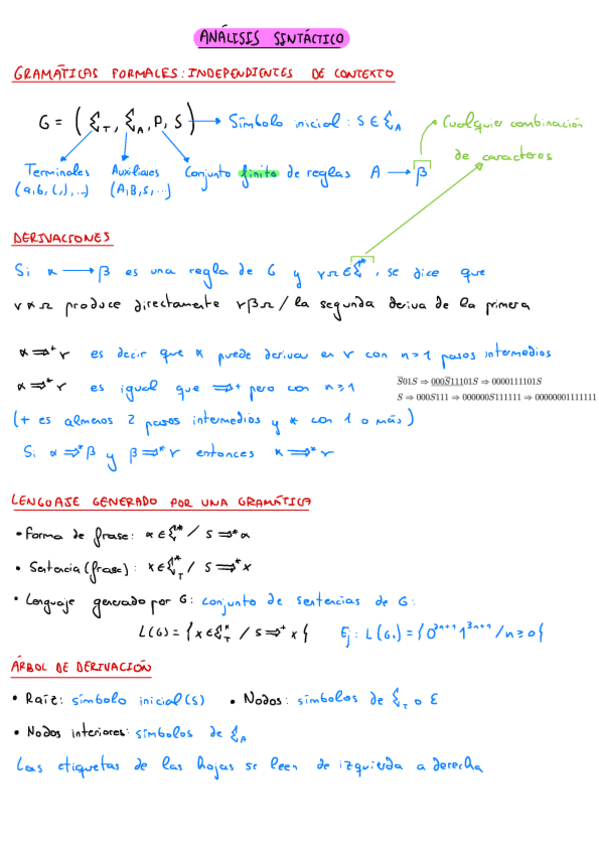 ANÁLISIS SINTÁCTICO
GRAMÁTICAS FORMALES: INDEPENDIENTES DE CONTEXTO
G = (Σ_T, Σ_A, P, S) → Símbolo inicial: S ∈ Σ_A
Cualquier combinación
de caracteres
Terminales Auxiliares Conjunto finito de reglas A → β
(a,b,(,),...) (A,B,S,...)
DERIVACIONES
Si α → β es una regla de G y γ,Ω ∈ Σ*, se dice que
γαΩ produce directamente γβΩ / la segunda deriva de la primera
α ⇒⁺ γ es decir que α puede derivar en γ con n>1 pasos intermedios
α ⇒* γ es igual que ⇒⁺ pero con n≥1
S01S ⇒ 000S11101S ⇒ 0000111101S
S ⇒ 000S111 ⇒ 000000S111111 ⇒ 00000001111111
(+ es almenos 2 pasos intermedios y * con 1 o más)
Si α ⇒* β y β ⇒* γ entonces α ⇒* γ
LENGUAJE GENERADO POR UNA GRAMÁTICA
• Forma de frase: α ∈ Σ* / S ⇒* α
• Sentencia (frase): x ∈ Σ_T* / S ⇒* x
• Lenguaje generado por G: conjunto de sentencias de G:
L(G) = {x ∈ Σ_T* / S ⇒⁺ x} Ej: L(G₁) = {0³ⁿ⁺¹ 1³ⁿ⁺¹ / n ≥ 0}
ÁRBOL DE DERIVACIÓN
• Raíz: símbolo inicial (S) • Nodos: símbolos de Σ_T o ε
• Nodos interiores: símbolos de Σ_A
Las etiquetas de las hojas se leen de izquierda a derecha